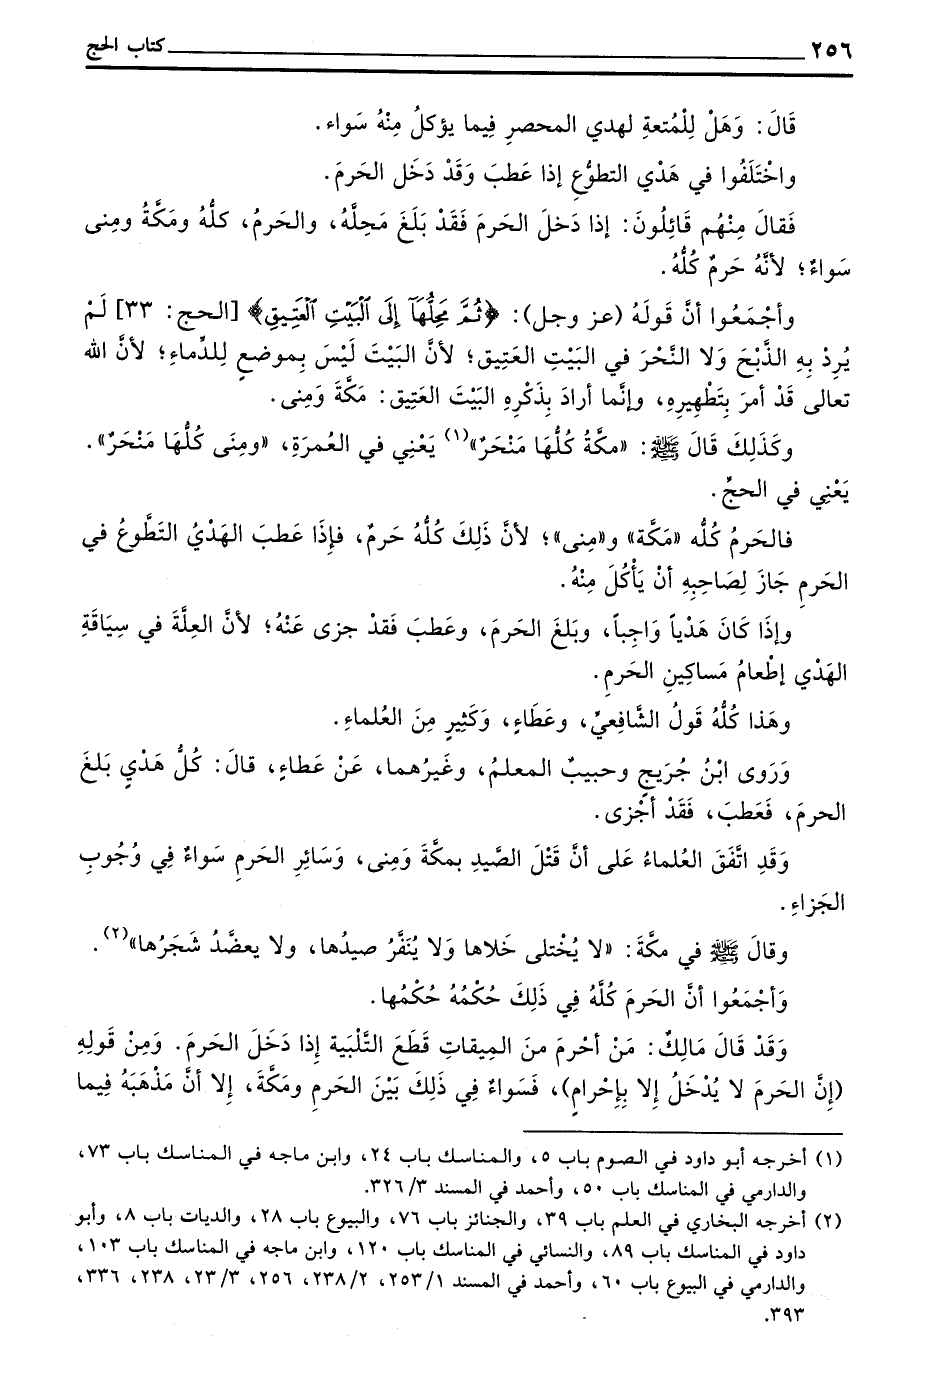 ٢٥٦ كتاب الحج
قَالَ: وَهَلْ لِلْمُتعةِ لهدي المحصرِ فِيما يؤكلُ مِنْهُ سَواء.
واخْتَلَفُوا في هَدْي التطوُّعِ إذا عَطبَ وَقَدْ دَخَل الحَرمَ.
فَقالَ مِنْهُم قَائِلُونَ: إذا دَخلَ الحَرمَ فَقَدْ بَلَغَ مَحِلَّهُ، والحَرمُ، كلُّهُ ومَكَّةُ ومِنى
سَواءٌ؛ لأنَّهُ حَرمٌ كُلُّهُ.
وأجْمَعُوا أنَّ قَولَهُ (عز وجل): ﴿ثُمَّ مَحِلُّهَآ إِلَى ٱلْبَيْتِ ٱلْعَتِيقِ﴾ [الحج: ٣٣] لَمْ
يُرِدْ بِهِ الذَّبْحَ وَلا النَّحْرَ في البَيْتِ العَتِيق؛ لأنَّ البَيْتَ لَيْسَ بِموضعٍ لِلدِّماءِ؛ لأنَّ الله
تعالى قَدْ أمرَ بِتَطْهيرِهِ، وإنَّما أرادَ بِذَكْرِهِ البَيْتَ العَتِيق: مَكَّةَ وَمِنى.
وكَذَلِكَ قَالَ ﷺ: «مكَّةُ كُلُّهَا مَنْحَرٌ»(١) يَعْنِي في العُمرَةِ، «ومِنَى كُلُّهَا مَنْحَرٌ».
يَعْنِي في الحجِّ.
فالحَرمُ كُلُّه «مَكَّة» و«مِنى»؛ لأنَّ ذَلِكَ كُلُّهُ حَرمٌ، فإذَا عَطبَ الهَدْيُ التَطَّوعُ في
الحَرمِ جَازَ لِصَاحِبِهِ أنْ يَأْكُلَ مِنْهُ.
وإذَا كَانَ هَدْياً وَاجِباً، وبَلغَ الحَرمَ، وعَطبَ فَقدْ جزى عَنْهُ؛ لأنَّ العِلَّةَ في سِيَاقَةِ
الهَدْي إطْعامُ مَساكِينِ الحَرمِ.
وهَذا كُلُّهُ قَولُ الشَّافعِيِّ، وعَطَاءٍ، وَكَثِيرٍ مِنَ العُلماءِ.
وَرَوى ابْنُ جُرَيجٍ وحبيبٌ المعلمُ، وغَيرُهما، عَنْ عَطاءٍ، قالَ: كُلُّ هَدْيٍ بَلغَ
الحرمَ، فَعَطبَ، فَقَدْ أجْزى.
وَقَدِ اتَّفَقَ العُلماءُ عَلى أنَّ قَتْلَ الصَّيدِ بِمكَّةَ وَمِنى، وَسَائِرِ الحَرمِ سَواءٌ فِي وُجُوبِ
الجَزاءِ.
وقالَ ﷺ في مكَّةَ: «لا يُخْتلى خَلاها وَلا يُنَفَّرُ صيدُها، ولا يعضَّدُ شَجَرُها»(٢).
وَأجْمَعُوا أنَّ الحَرمَ كُلَّهُ فِي ذَلِكَ حُكْمُهُ حُكْمُها.
وَقَدْ قَالَ مَالِكٌ: مَنْ أحْرمَ منَ المِيقاتِ قَطَعَ التَّلْبِيةَ إذا دَخَلَ الحَرمَ. وَمِنْ قَولِهِ
(إنَّ الحَرمَ لا يُدْخَلُ إلا بِإحْرامٍ)، فَسَواءٌ فِي ذَلِكَ بَيْنَ الحَرمِ ومَكَّةَ، إلا أنَّ مَذْهَبَهُ فِيما
(١) أخرجه أبو داود في الصوم باب ٥، والمناسك باب ٢٤، وابن ماجه في المناسك باب ٧٣،
والدارمي في المناسك باب ٥٠، وأحمد في المسند ٣/ ٣٢٦.
(٢) أخرجه البخاري في العلم باب ٣٩، والجنائز باب ٧٦، والبيوع باب ٢٨، والديات باب ٨، وأبو
داود في المناسك باب ٨٩، والنسائي في المناسك باب ١٢٠، وابن ماجه في المناسك باب ١٠٣،
والدارمي في البيوع باب ٦٠، وأحمد في المسند ١/ ٢٥٣، ٢/ ٢٣٨، ٢٥٦، ٣/ ٢٣، ٢٣٨، ٣٣٦،
٣٩٣.